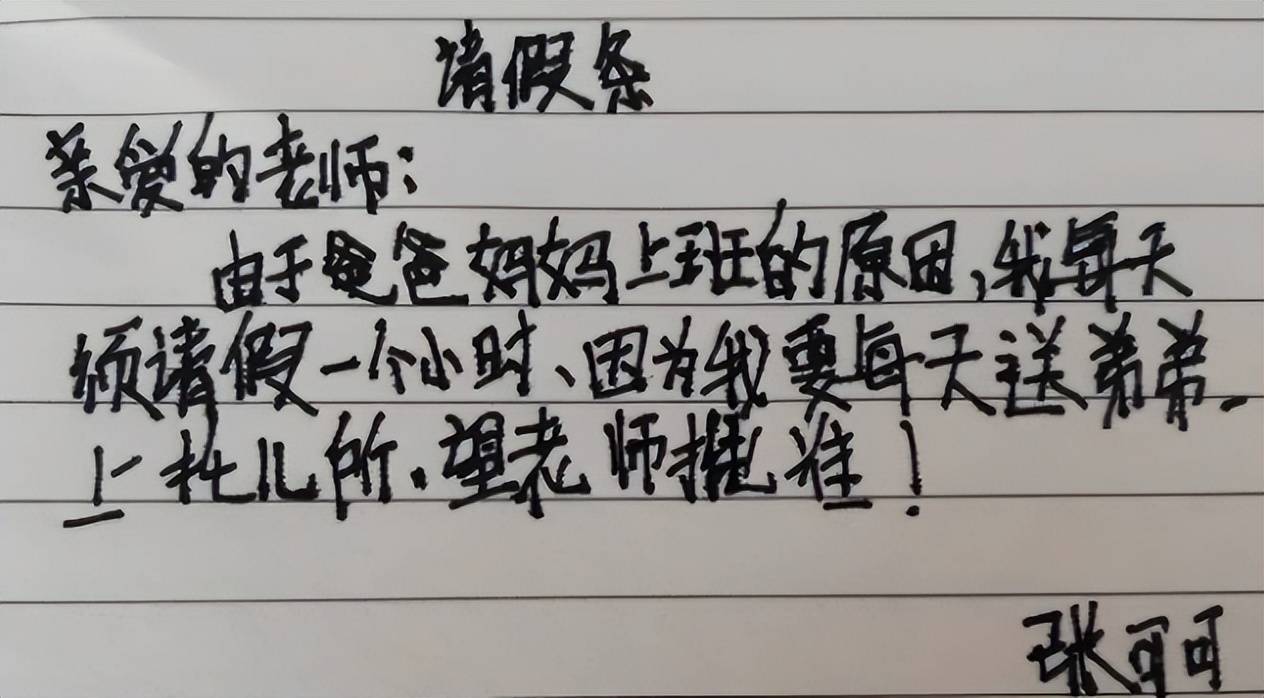 请假条
亲爱的老师:
由于爸爸妈妈上班的原因,我每天
须请假一个小时、因为我要每天送弟弟.
上托儿所.望老师批准!
张可可